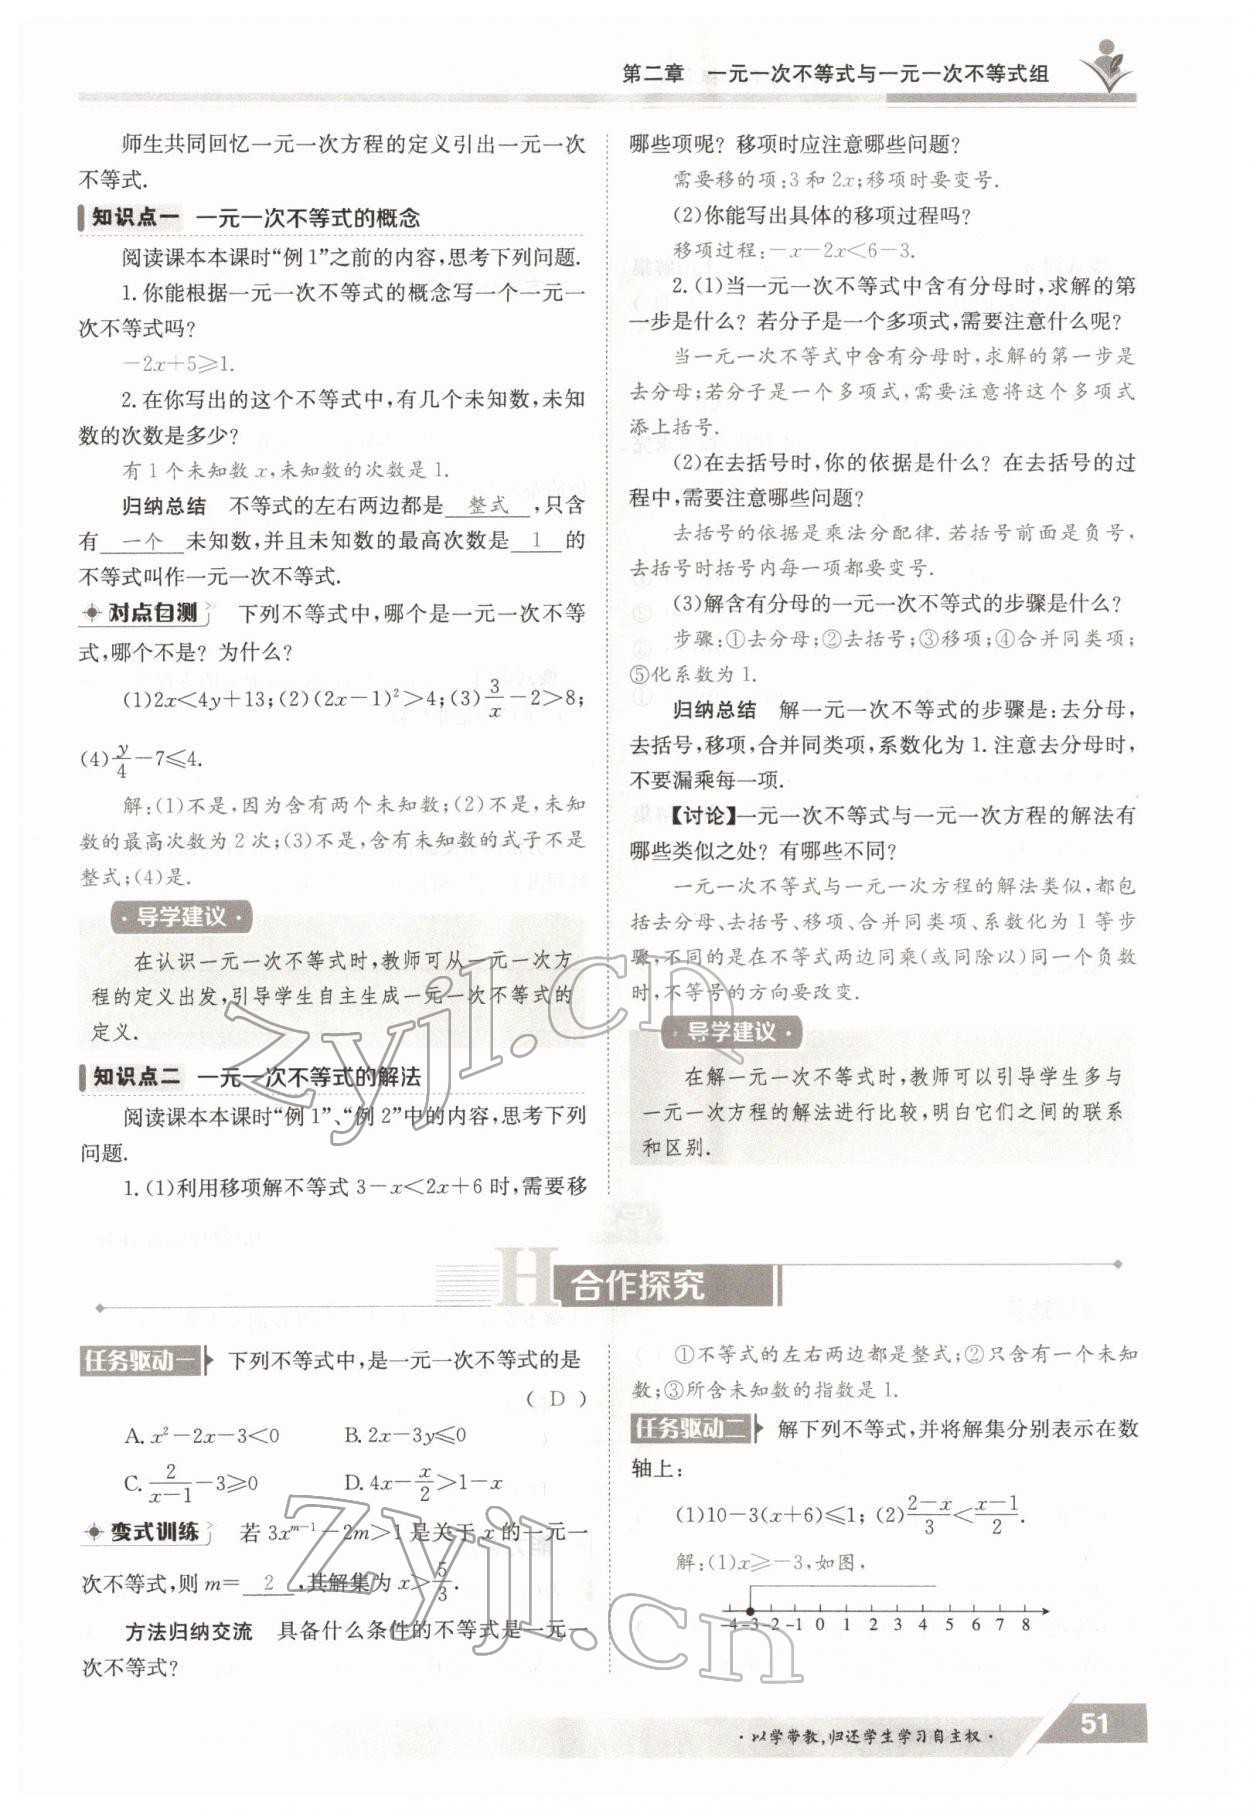 第二章 一元一次不等式与一元一次不等式组
师生共同回忆一元一次方程的定义引出一元一次
不等式.
知识点一 一元一次不等式的概念
阅读课本本课时“例1”之前的内容,思考下列问题.
1.你能根据一元一次不等式的概念写一个一元一
次不等式吗?
-2x+5⩾1.
2.在你写出的这个不等式中,有几个未知数,未知
数的次数是多少?
有1个未知数x,未知数的次数是1.
归纳总结 不等式的左右两边都是 整式 ,只含
有 一个 未知数,并且未知数的最高次数是 1 的
不等式叫作一元一次不等式.
对点自测 下列不等式中,哪个是一元一次不等
式,哪个不是? 为什么?
(1)2x<4y+13;(2)(2x-1)²>4;(3)3/x-2>8;
(4)y/4-7⩽4.
解:(1)不是,因为含有两个未知数;(2)不是,未知
数的最高次数为2次;(3)不是,含有未知数的式子不是
整式;(4)是.
·导学建议·
在认识一元一次不等式时,教师可从一元一次方
程的定义出发,引导学生自主生成一元一次不等式的
定义.
知识点二 一元一次不等式的解法
阅读课本本课时“例1”、“例2”中的内容,思考下列
问题.
1.(1)利用移项解不等式3-x<2x+6时,需要移
哪些项呢? 移项时应注意哪些问题?
需要移的项:3和2x;移项时要变号.
(2)你能写出具体的移项过程吗?
移项过程:-x-2x<6-3.
2.(1)当一元一次不等式中含有分母时,求解的第
一步是什么? 若分子是一个多项式,需要注意什么呢?
当一元一次不等式中含有分母时,求解的第一步是
去分母;若分子是一个多项式,需要注意将这个多项式
添上括号.
(2)在去括号时,你的依据是什么? 在去括号的过
程中,需要注意哪些问题?
去括号的依据是乘法分配律.若括号前面是负号,
去括号时括号内每一项都要变号.
(3)解含有分母的一元一次不等式的步骤是什么?
步骤:①去分母;②去括号;③移项;④合并同类项;
⑤化系数为1.
归纳总结 解一元一次不等式的步骤是:去分母,
去括号,移项,合并同类项,系数化为1.注意去分母时,
不要漏乘每一项.
【讨论】一元一次不等式与一元一次方程的解法有
哪些类似之处? 有哪些不同?
一元一次不等式与一元一次方程的解法类似,都包
括去分母、去括号、移项、合并同类项、系数化为1等步
骤,不同的是在不等式两边同乘(或同除以)同一个负数
时,不等号的方向要改变.
·导学建议·
在解一元一次不等式时,教师可以引导学生多与
一元一次方程的解法进行比较,明白它们之间的联系
和区别.
H 合作探究
任务驱动一 下列不等式中,是一元一次不等式的是
( D )
A.x²-2x-3<0 B.2x-3y⩽0
C.2/(x-1)-3⩾0 D.4x-x/2>1-x
变式训练 若3xᵐ⁻¹-2m>1是关于x的一元一
次不等式,则m= 2 ,其解集为x>5/3.
方法归纳交流 具备什么条件的不等式是一元一
次不等式?
①不等式的左右两边都是整式;②只含有一个未知
数;③所含未知数的指数是1.
任务驱动二 解下列不等式,并将解集分别表示在数
轴上:
(1)10-3(x+6)⩽1;(2)(2-x)/3<(x-1)/2.
解:(1)x⩾-3,如图,
-4 -3 -2 -1 0 1 2 3 4 5 6 7 8
·以学带教,归还学生学习自主权·
51
zyjl.cn
zyjl.cn